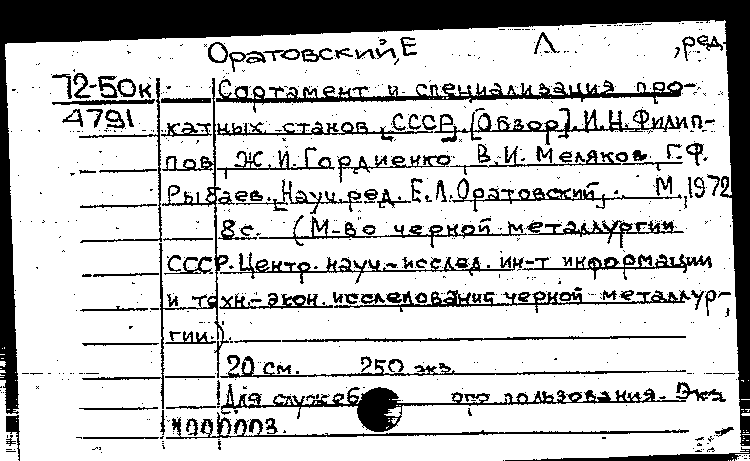 Оратовский, Е Л , ред.
72-50к Сортамент и специализация про-
4791 катных станов СССР. [Обзор]. И.Н.Филип-
пов, Ж.И.Гордиенко, В.И.Меляков, Г.Ф.
Рыбаев. Науч. ред. Е.Л.Оратовский. М.,1972
8с. (М-во черной металлургии
СССР. Центр. науч.-исслед. ин-т информации
и техн.-экон. исследований черной металлур-
гии.)
20 см. 250 экз.
Для служеб ого пользования. Экз
№000003.